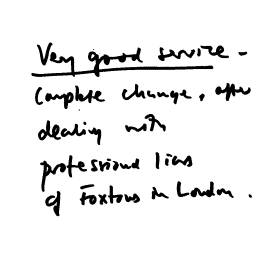 Very good service -
Complete change, after
dealing with
professional liars
of Foxtons in London.